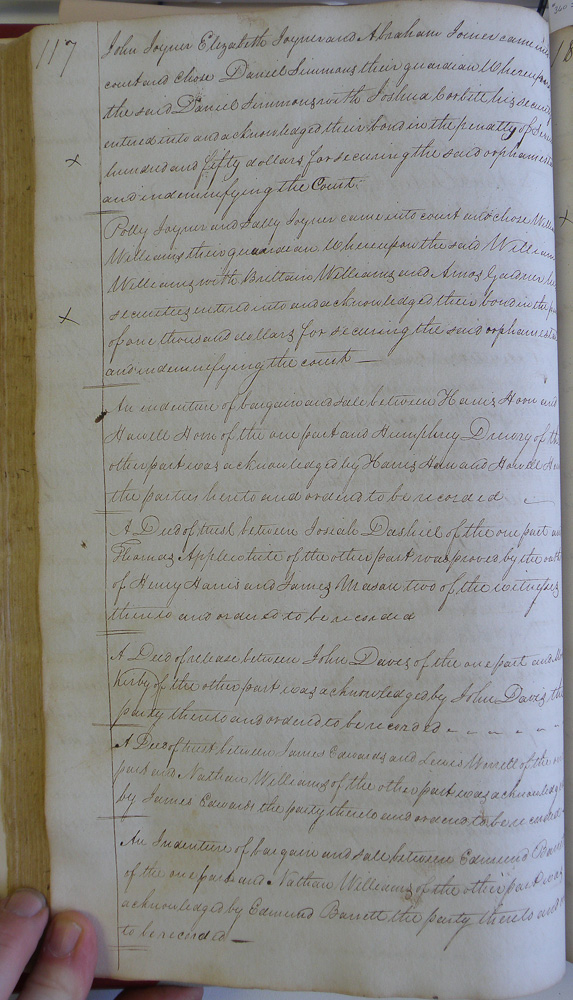 117
John Joyner Elizabeth Joyner and Abraham Joiner came into
court and chose Daniel Simmons their guardian Whereupon
the said Daniel Simmons with Joshua Corbitt his security
entered into and acknowledged their bond in the penalty of Seven
hundred and fifty dollars for securing the said orphans esta
and indemnifying the Court.
Polly Joyner and Sally Joyner came into court and chose Willia
Williams their guardian Whereupon the said William
Williams with Brittain Williams and Amos Gardner his
securities entered into and acknowledged their bond in the pe
of one thousand dollars for securing the said orphans esta
and indemnifying the court
An indenture of bargain and sale between Harris Horn and
Howell Horn of the one part and Humphrey Drewry of the
other part was acknowledged by Harris Horn and Howell Ho
the parties hereto and ordered to be recorded
A Deed of trust between Josiah Dashiel of the one part an
Thomas Applewhite of the other part was proved by the oath
of Henry Harris and James Mason two of the witnesses
thereto and ordered to be recorded
A Deed of release between John Daves of the one part and
Kirby of the other part was acknowledged by John Daves the
party thereto and ordered to be recorded
A Deed of trust between James Edwards and Lewis Worrell of the one
part and Nathan Williams of the other part was acknowledge
by James Edwards the party thereto and ordered to be recorded
An Indenture of bargain and sale between Edmund Barrett
of the one part and Nathan Williams of the other part was
acknowledged by Edmund Barrett the party thereto and
to be recorded